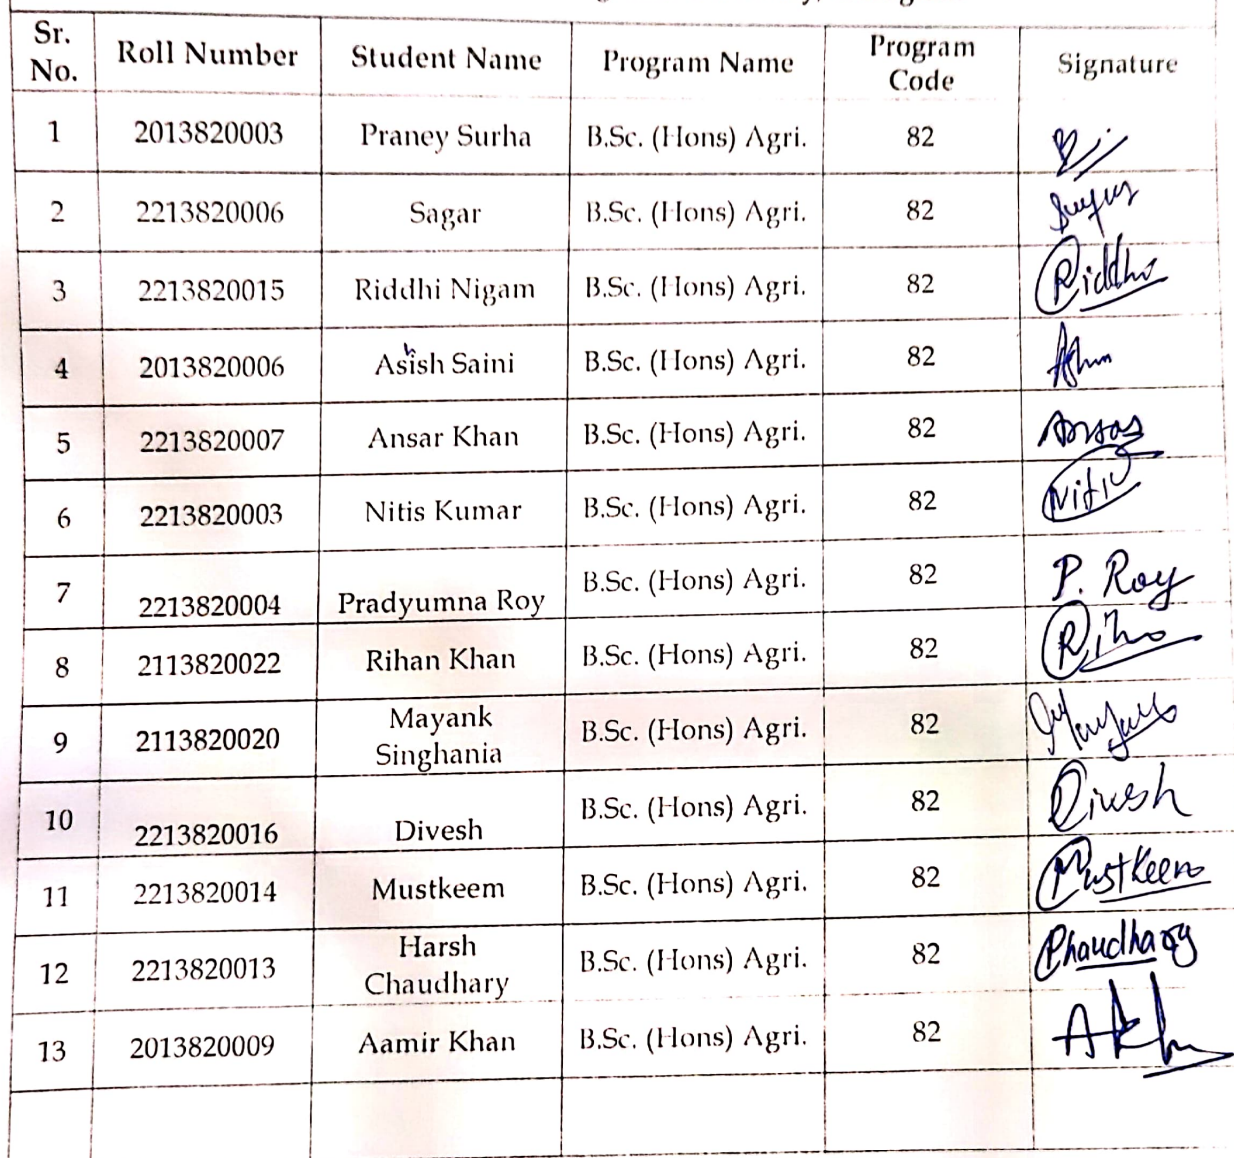 Sr. No. Roll Number Student Name Program Name Program Code Signature
1 2013820003 Praney Surha B.Sc. (Hons) Agri. 82
2 2213820006 Sagar B.Sc. (Hons) Agri. 82
3 2213820015 Riddhi Nigam B.Sc. (Hons) Agri. 82 Riddhi
4 2013820006 Asish Saini B.Sc. (Hons) Agri. 82
h
5 2213820007 Ansar Khan B.Sc. (Hons) Agri. 82
6 2213820003 Nitis Kumar B.Sc. (Hons) Agri. 82
7 2213820004 Pradyumna Roy B.Sc. (Hons) Agri. 82 P. Roy
8 2113820022 Rihan Khan B.Sc. (Hons) Agri. 82
9 2113820020 Mayank Singhania B.Sc. (Hons) Agri. 82
10 2213820016 Divesh B.Sc. (Hons) Agri. 82 Divesh
11 2213820014 Mustkeem B.Sc. (Hons) Agri. 82 Mustkeem
12 2213820013 Harsh Chaudhary B.Sc. (Hons) Agri. 82 Chaudhary
13 2013820009 Aamir Khan B.Sc. (Hons) Agri. 82